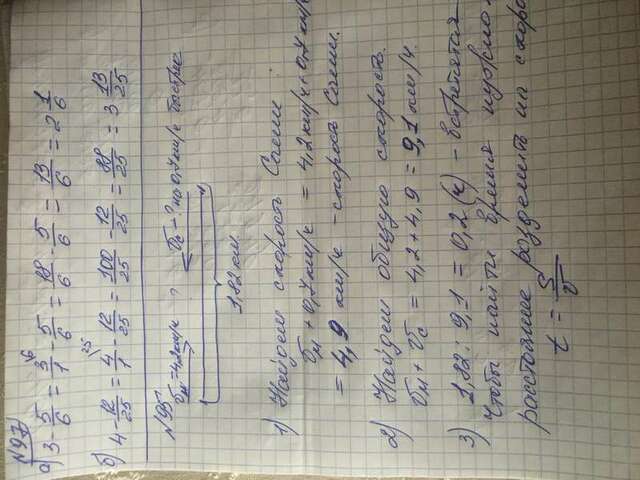 №97
а) 3 - 5/6 = 3/1 ⁶ - 5/6 = 18/6 - 5/6 = 13/6 = 2 1/6
б) 4 - 12/25 = 4/1 ²⁵ - 12/25 = 100/25 - 12/25 = 88/25 = 3 13/25
№95
υм = 4,2 км/ч ? υс - ? на 0,7 км/ч быстрее
1,82 км.
1) Найдем скорость Саши:
υм + 0,7 км/ч = 4,2 км/ч + 0,7 км/ч
= 4,9 км/ч - скорость Саши.
2) Найдем общую скорость.
υм + υс = 4,2 + 4,9 = 9,1 км/ч.
3) 1,82 : 9,1 = 0,2 (ч) - встретятся
Чтобы найти время нужно
расстояние разделить на скоро
t = S/υ